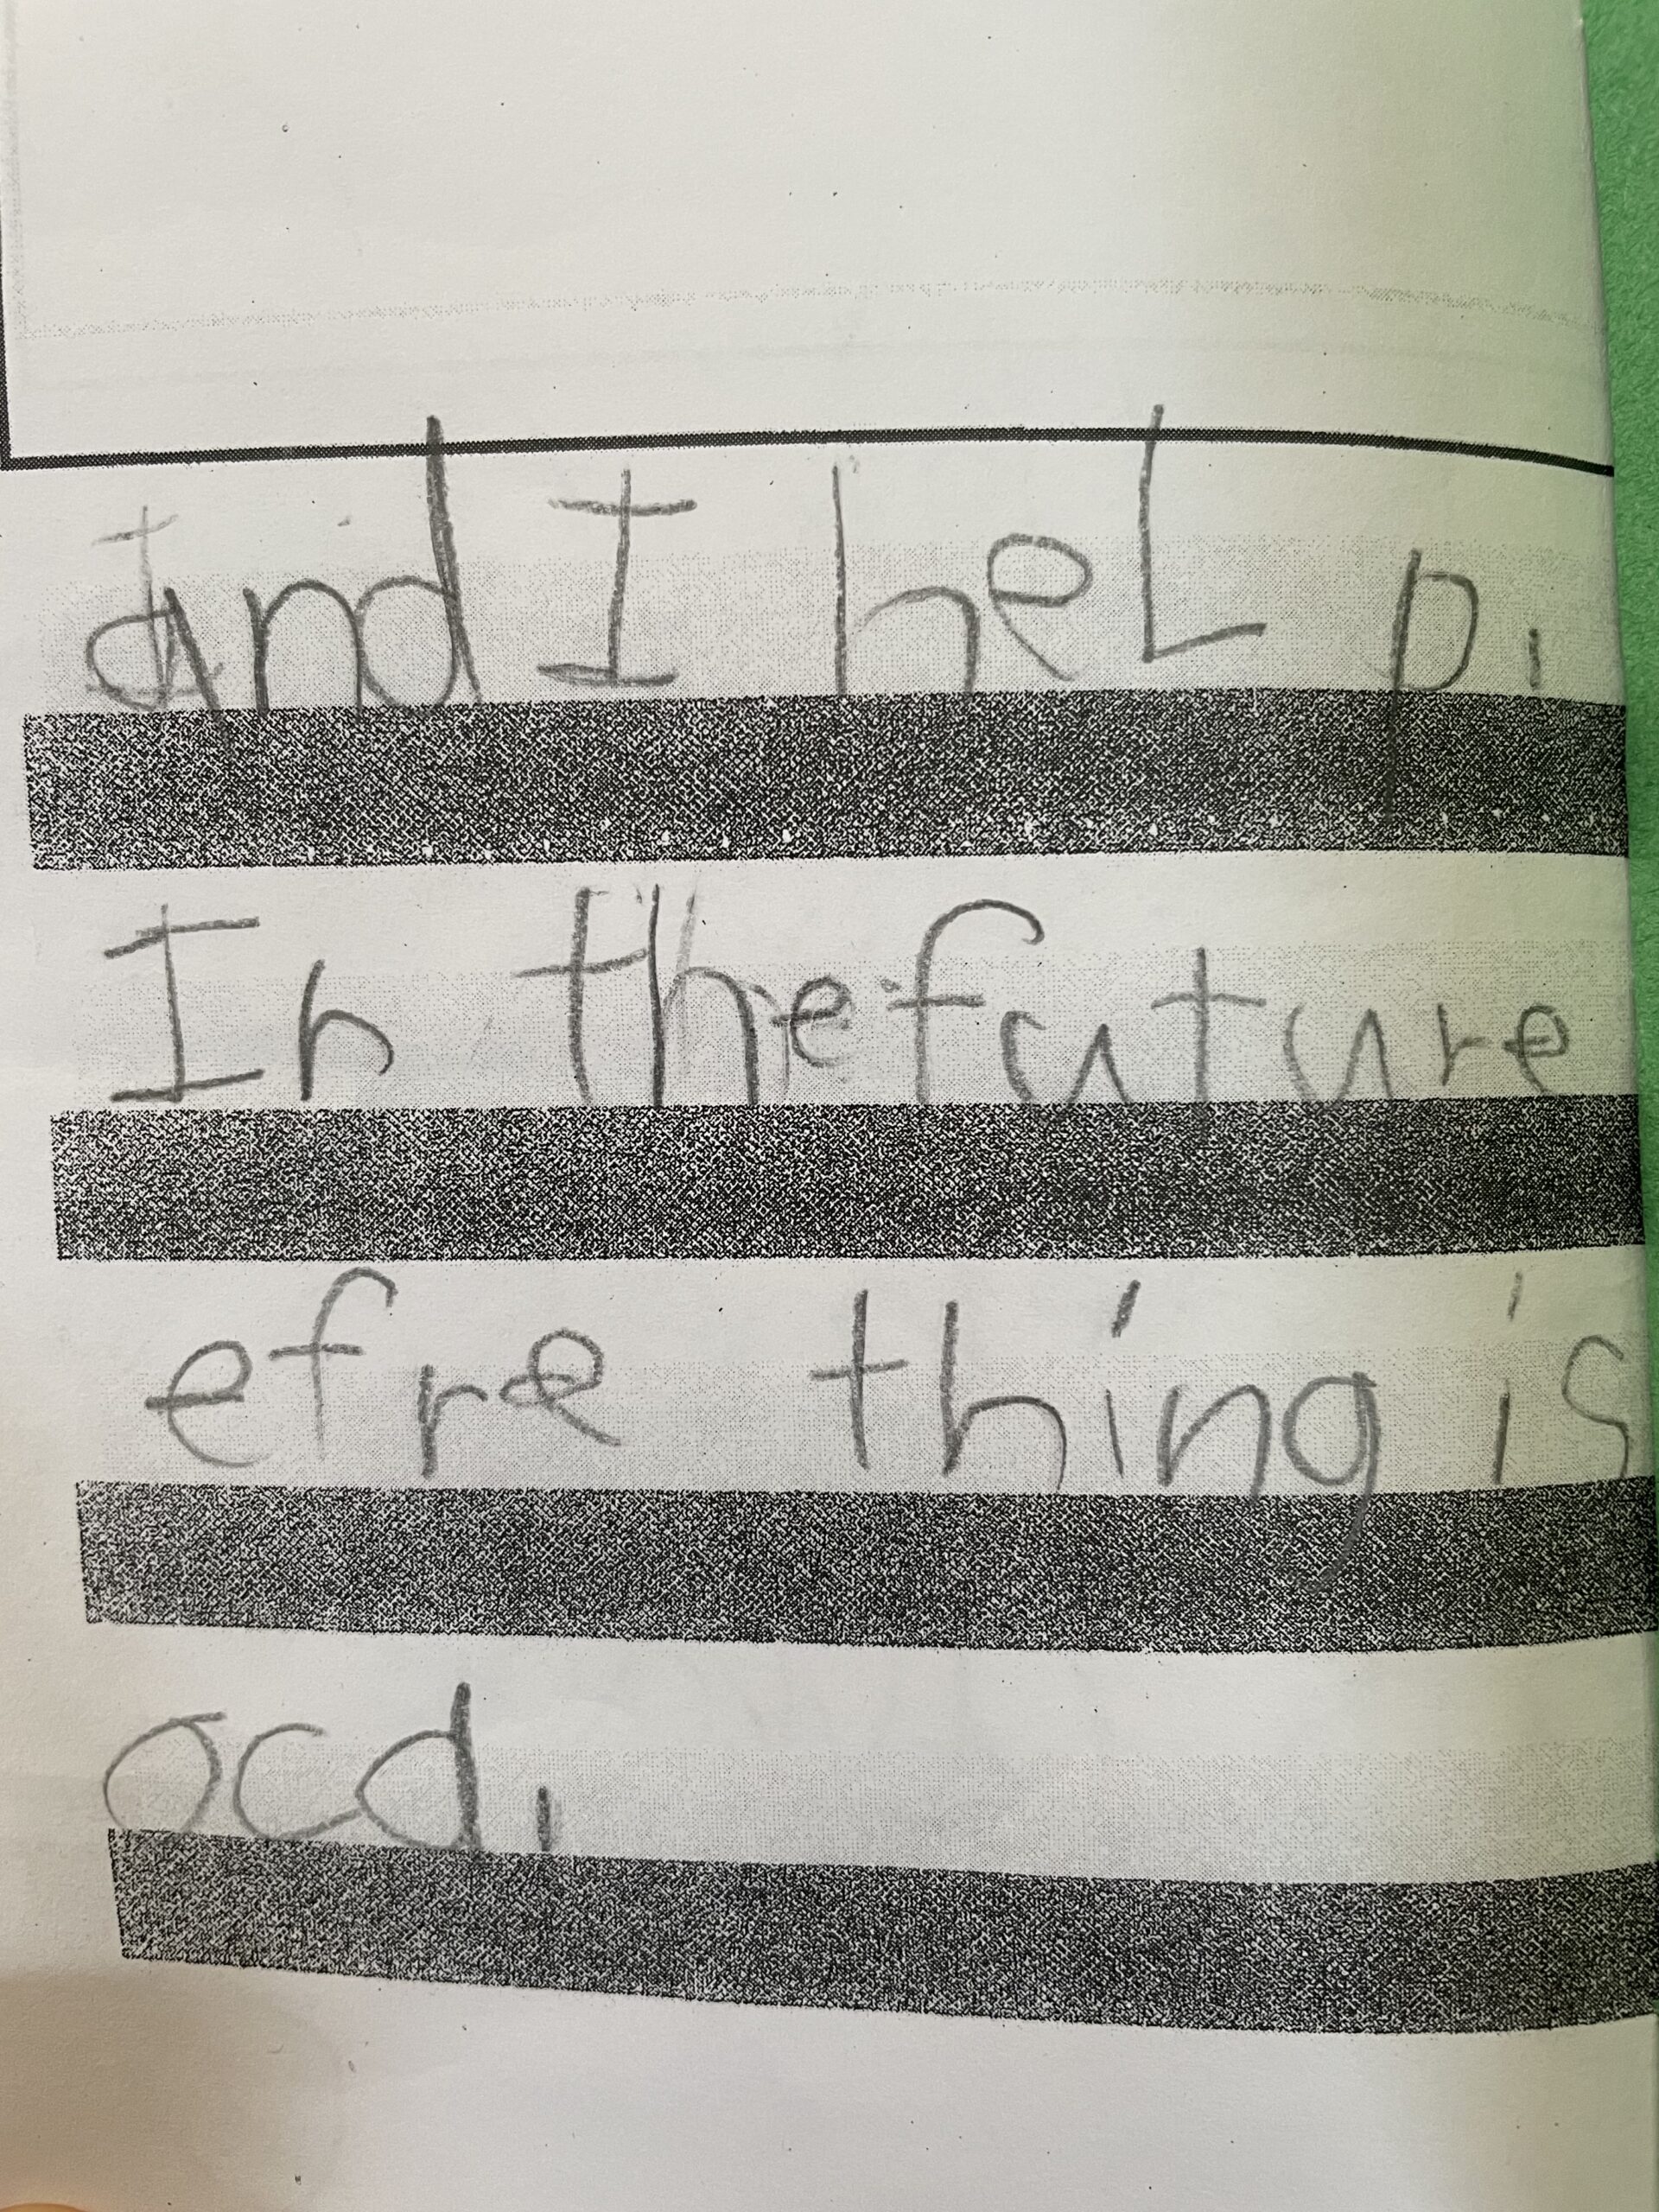 and I heL p.
In the future
efre thing is
ocd.